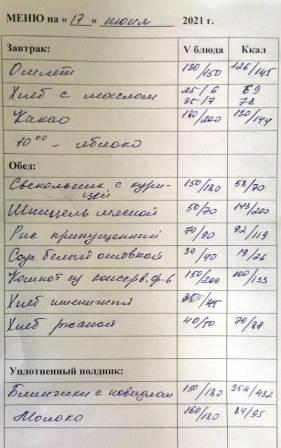 МЕНЮ на « 17 » июня 2021 г.
Завтрак: V блюда Ккал
Омлет 130/150 126/145
Хлеб с маслом 25/6 69
25/7 78
Какао 180/200 130/144
10⁰⁰ - яблоко
Обед:
Свекольник с кури-
цей 150/180 58/70
Шницель мясной 50/70 143/200
Рис припущенный 70/90 92/119
Соус белый основной 30/40 19/26
Компот из консерв. ф-в 150/200 100/133
Хлеб пшеничн
Хлеб ржаной 40/50 70/88
Уплотненный полдник:
Блинчики с повидлом 150/180 354/432
Молоко 160/180 84/95